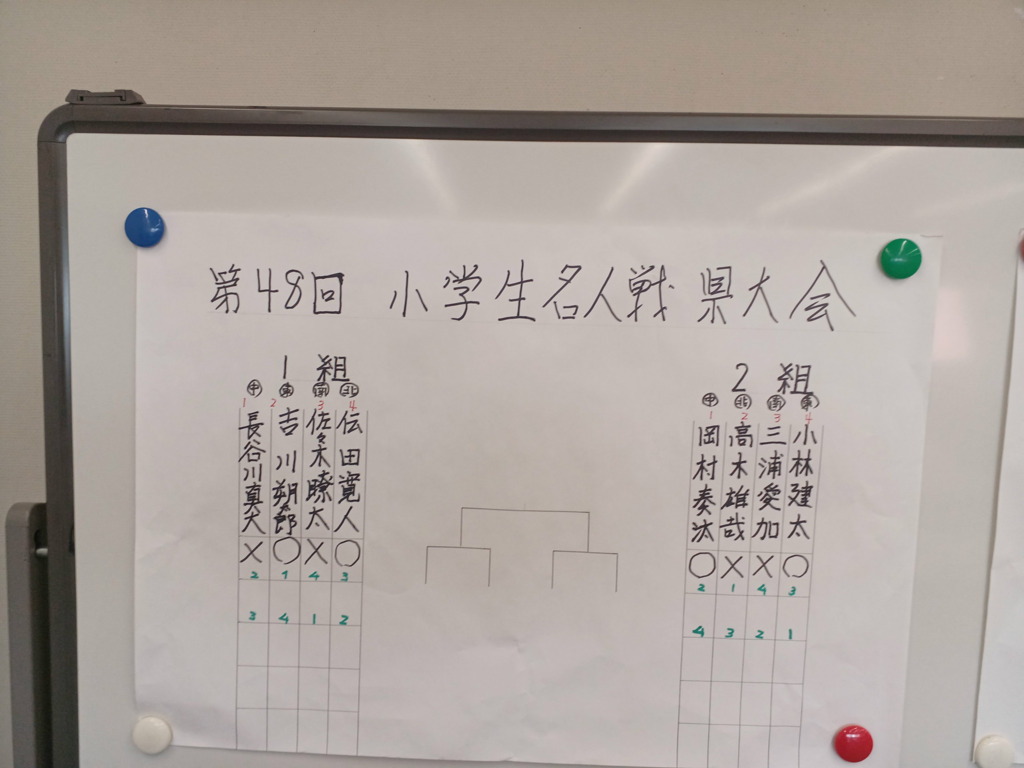 第48回 小学生名人戦 県大会
1 組
中 東 南 北
1 2 3 4
長谷川真大
吉川朔郎
佐々木瞭太
伝田寛人
× ○ × ○
2 1 4 3
3 4 1 2
2 組
中 北 南 東
1 2 3 4
岡村奏汰
高木雄哉
三浦愛加
小林建太
○ × × ○
2 1 4 3
4 3 2 1